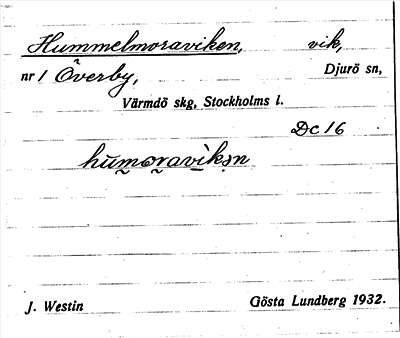 Hummelmoraviken, vik,
nr 1 Överby, Djurö sn,
Värmdö skg, Stockholms l.
Dc 16
hu̬mərav̀ikən
J. Westin Gösta Lundberg 1932.